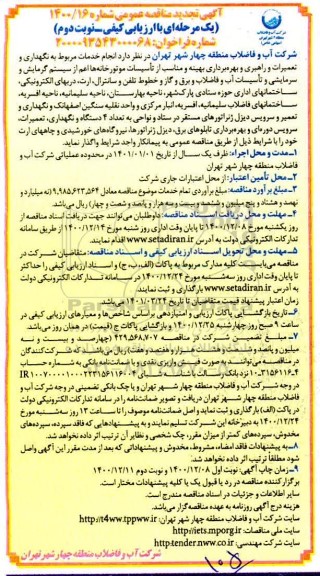 آگهی تجدید مناقصه عمومی شماره ۱۴۰۰/۱۶
(یک مرحله‌ای با ارزیابی کیفی_نوبت دوم)
شماره فراخوان: ۲۰۰۰۰۰۱۹۵۴۳۰۰۰۰۶۸
شرکت آب و فاضلاب منطقه چهار شهر تهران در نظر دارد انجام خدمات مربوط به نگهداری و
تعمیرات و راهبری و بهره‌برداری بهینه و مناسب از تأسیسات موتورخانه‌ها اعم از سیستم گرمایش و
سرمایشی و تأسیسات آب و فاضلاب و برق و گاز و خطوط تلفن و سانترال، ارت، دربهای الکترونیکی،
ساختمانهای اداری حوزه ستادی پارک‌شهر، ناحیه بهارستان، ناحیه سلیمانیه، ناحیه افسریه،
ساختمانهای فاضلاب سلیمانیه، افسریه، انبار مرکزی و واحد نقلیه سنگین اصفهانک و نگهداری و
تعمیر و سرویس دیزل ژنراتورهای مستقر در ستاد و نواحی به تعداد ۴ دستگاه و نگهداری، تعمیرات،
سرویس دوره‌ای و بهره‌برداری تابلوهای برق، دیزل ژنراتورها، نیروگاه‌های خورشیدی و چاههای ارت
خود را با شرایط ذیل از طریق مناقصه عمومی به پیمانکار واجد شرایط واگذار نماید.
۱-مدت و محل اجراء: ظرف یک سال از تاریخ ۱۴۰۱/۰۱/۰۱ در محدوده عملیاتی شرکت آب و
فاضلاب منطقه چهار شهر تهران
۲-محل تأمین اعتبار: از محل اعتبارات جاری شرکت
۳-مبلغ برآورد مناقصه: مبلغ برآوردی تمام خدمات موضوع مناقصه معادل ۹،۹۸۵،۶۲۳،۵۶۴ (نه میلیارد و
نهصد و هشتاد و پنج میلیون و ششصد و بیست و سه هزار و پانصد و شصت و چهار) ریال می‌باشد.
۴-مهلت و محل دریافت اسناد مناقصه: داوطلبان می‌توانند جهت دریافت اسناد مناقصه از
روز یکشنبه مورخ ۱۴۰۰/۱۲/۰۸ تا پایان وقت اداری روز شنبه مورخ ۱۴۰۰/۱۲/۱۴ از طریق سامانه
تدارکات الکترونیکی دولت به آدرس www.setadiran.ir اقدام نمایند.
۵-مهلت و محل تحویل اسناد ارزیابی کیفی و اسناد مناقصه: متقاضیان شرکت در
مناقصه می‌بایست کلیه مدارک مربوط به پاکات (الف، ب، ج) و اسناد ارزیابی کیفی را حداکثر
تا پایان وقت اداری روز سه‌شنبه مورخ ۱۴۰۰/۱۲/۲۴ در سامانه تدارکات الکترونیکی دولت
به آدرس www.setadiran.ir بارگذاری و ثبت نمایند.
زمان اعتبار پیشنهاد قیمت متقاضیان تا تاریخ ۱۴۰۱/۰۳/۲۴ می‌باشد.
۶-تاریخ بازگشایی پاکات ارزیابی و امتیازدهی براساس شاخص‌ها و معیارهای ارزیابی کیفی در
ساعت ۹ صبح روز چهارشنبه ۱۴۰۰/۱۲/۲۵ و بازگشایی پاکات ج (قیمت) در همان روز می‌باشد.
۷-مبلغ تضمین شرکت در مناقصه ۴۲۹،۵۶۸،۷۰۷ (چهارصد و بیست و نه
میلیون و پانصد و شصت و هشت هزار و هفتصد و هفت) ریال می‌باشد که شرکت‌کنندگان
در مناقصه می‌توانند به صورت فیش واریز نقدی و یا ضمانت‌نامه بانکی به شماره حساب
در وجه شرکت آب و فاضلاب منطقه چهار شهر تهران و یا چک بانکی تضمینی در وجه شرکت آب و
فاضلاب منطقه چهار شهر تهران دریافت و تصویر ضمانتنامه را در سامانه تدارکات الکترونیکی دولت
در پاکت (الف) بارگذاری و ثبت نماید و اصل ضمانتنامه موصوف را تا ساعت ۱۳ روز سه‌شنبه مورخ
۱۴۰۰/۱۲/۲۴ به دبیرخانه این شرکت تسلیم نمایند و به پیشنهادهایی که فاقد سپرده، سپرده‌های
مخدوش، سپرده‌های کمتر از میزان مقرر، چک شخصی و نظایر آن ترتیب اثر داده نخواهد شد.
۸-به پیشنهادات فاقد امضاء، مشروط، مخدوش و پیشنهاداتی که بعد از مدت مقرر این آگهی واصل
شود مطلقاً ترتیب اثر داده نخواهد شد.
۹-زمان چاپ آگهی: نوبت اول ۱۴۰۰/۱۲/۰۸ و نوبت دوم ۱۴۰۰/۱۲/۱۱
برگزارکننده مناقصه در رد یا قبول یک یا کلیه پیشنهادات مختار است.
سایر اطلاعات و جزئیات در اسناد مناقصه مندرج است.
هزینه درج آگهی روزنامه به عهده مناقصه‌گزار می‌باشد.
سایت شرکت آب و فاضلاب منطقه چهار شهر تهران: http://t4ww.tppww.ir
سایت ملی مناقصات: http://iets.mporg.ir
سایت شرکت مهندسی: http:tender.nww.co.ir
شرکت آب و فاضلاب منطقه چهار شهر تهران